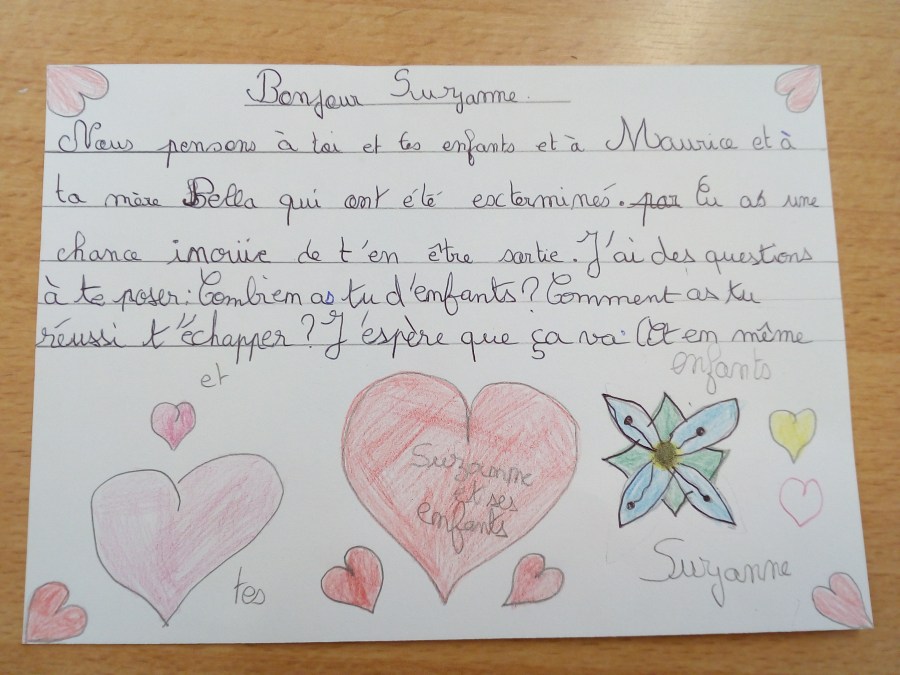 Bonjour Suzanne.
Nous pensons à toi et tes enfants et à Maurice et à
ta mère Bella qui ont été exterminés. par Tu as une
chance de t'en être sortie. J'ai des questions
à te poser: Combien as tu d'enfants? Comment as tu
réussi t'échapper? J'espère que ça va. Et en même
et
enfants
Suzanne
et ses
enfants
Suzanne
tes